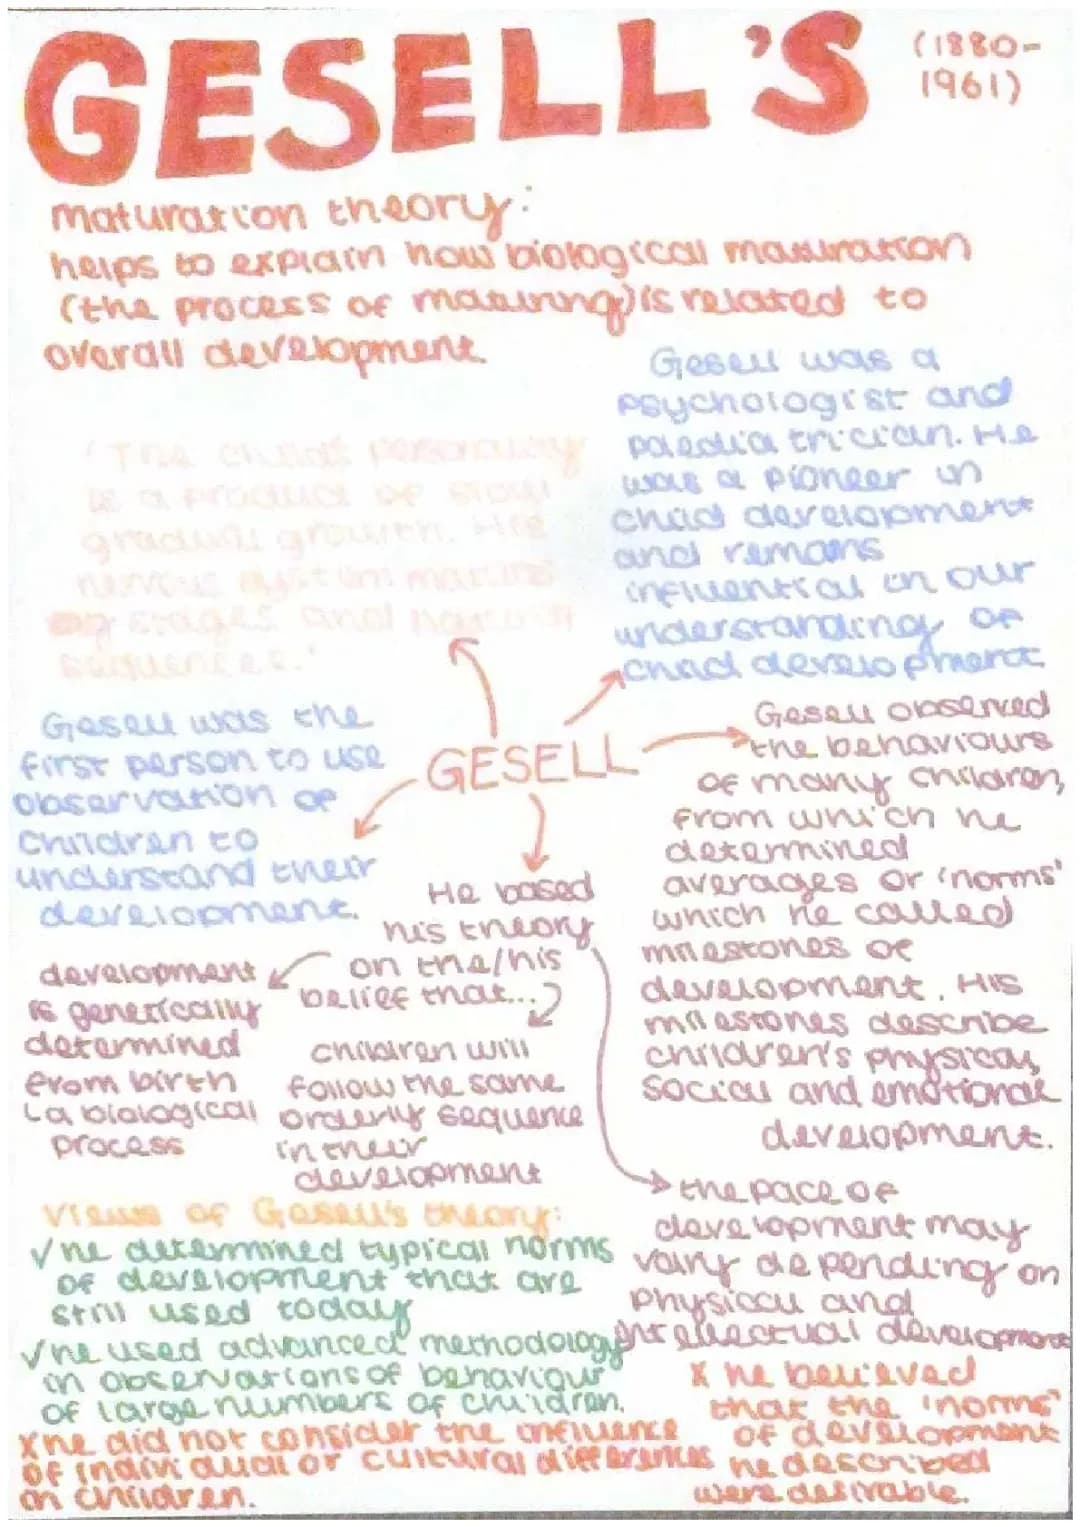 GESELL'S
(1880-
1961)
maturation theory:
helps to explain how biological maturation
(the process of maturing) is related to
overall development.
Gesell was a
psychologist and
paediatrician. He
was a pioneer in
child development
and remains
influential in our
understanding of
child development
'The child's personality
is a product of slow
gradual growth. His
nervous system matures
by stages and natural
sequences.'
GESELL
Gesell was the
first person to use
observation of
children to
understand their
development.
Gesell observed
the behaviours
of many children,
from which he
determined
averages or 'norms'
which he called
milestones of
development. His
milestones describe
children's physical,
social and emotional
development.
He based
his theory
on the/his
belief that...
development
is genetically
determined
from birth
(a biological
process
children will
follow the same
orderly sequence
in their
development
the pace of
development may
vary depending on
physical and
intellectual development
views of Gesell's theory:
✓ he determined typical norms
of development that are
still used today
✓ he used advanced methodology
in observations of behaviour
of large numbers of children.
x he did not consider the influence
of individual or cultural differences
on children.
x he believed
that the 'norms'
of development
he described
were desirable.